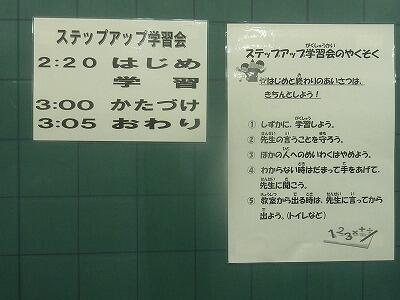 ステップアップ学習会
2:20 はじめ
学習
3:00 かたづけ
3:05 おわり
ステップアップ学習会のやくそく
☆はじめと終わりのあいさつは、
きちんとしよう！
① しずかに、学習しよう。
② 先生の言うことを守ろう。
③ ほかの人へのめいわくはやめよう。
④ わからない時はだまって手をあげて、
先生に聞こう。
⑤ 教室から出る時は、先生に言ってから
出よう。(トイレなど)